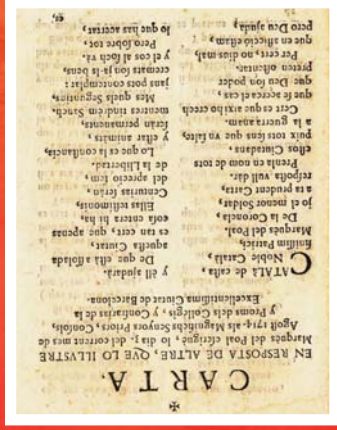 ✠
CARTA,
EN RESPOSTA DE ALTRE, QVE LO ILLVSTRE
Marquès del Poal escrigué, lo dia 3. del corrent mes de
Agost 1714. als Magnifichs Senyors Priors, Consols,
y Proms dels Collegis, y Confraries de la
Excellentissima Ciutat de Barcelona.
CATALÀ de casta,
Noble Català,
finissim Patrici,
Marquès del Poal.
De la Coronela,
jo el menor Soldat,
a ta prudent Carta,
resposta vull dar.
Prenla en nom de tots
estos Ciutadans,
puix tots sens que vn falte,
a la guerra anam.
Cert es que aixi ho creech
que se acerca el cas,
que Deu son poder
preten ostentar.
Per cert, no dius mal,
que en aflicció estam,
pero Deu ajuda,
y ell ajudarà.
De que està assolada
aquesta Ciutat,
es tan cert, que apenas
cosa entera hi ha,
Ellas testimonis,
Centurias seràn
del apreció fem
de la Llibertat.
Lo que es la constancia,
y estar animats,
seràn permanents,
mentres tindrèm Sanch.
Mes quals Seguntins,
jans pots contemplar:
cremats son ja-ls bens,
y el cos al foch và.
Pero sobre tot,
lo que has acertat,
es,